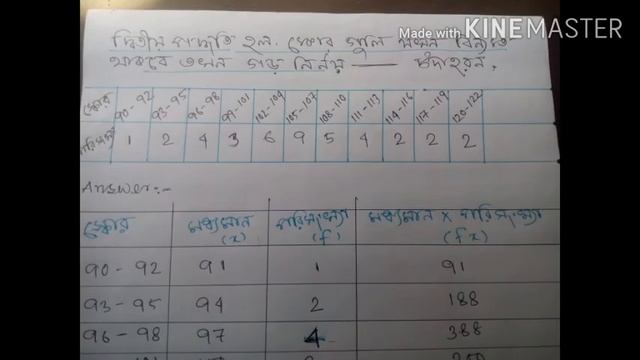 Made with KINEMASTER
দ্বিতীয় পদ্ধতি হল. স্কোর গুলি যখন বিন্যস্ত
থাকবে তখন গড় নির্নয় — উদাহরন.
স্কোর 90-92 93-95 96-98 99-101 102-104 105-107 108-110 111-113 114-116 117-119 120-122
পরিসংখ্যা 1 2 4 3 6 9 5 4 2 2 2
Answer:-
স্কোর মধ্যমান পরিসংখ্যা মধ্যমান × পরিসংখ্যা
(x) (f) (fx)
90 - 92 91 1 91
93 - 95 94 2 188
96 - 98 97 4 388